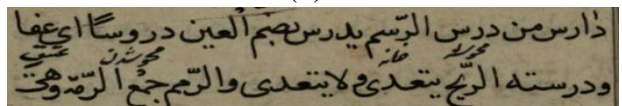 دارس من درس الرّسم يدرس بضم العين دروسًا اى عفا
ودرسته الرّيح يتعدى ولا يتعدى والرّمم جمع الرّمّة وهى